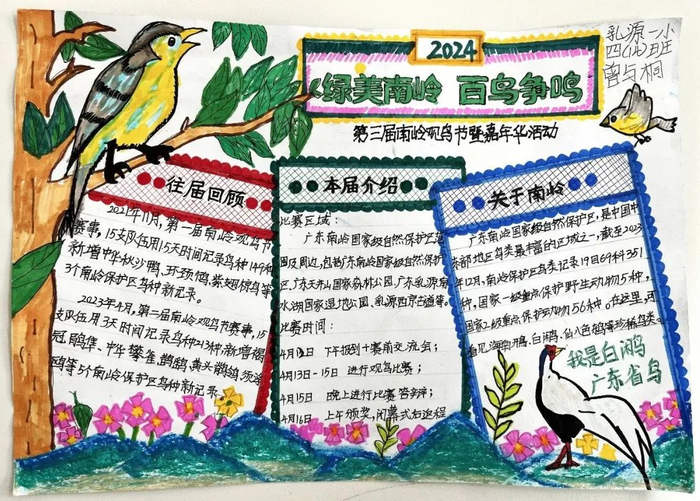 2024
绿美南岭 百鸟争鸣
第三届南岭观鸟节暨嘉年华活动
乳源一小
曾与桐
往届回顾
2021年11月,第一届南岭观鸟节
赛事,15支队伍用1.5天时间记录鸟种149种
新增中华秋沙鸭、环颈鸻、紫翅椋鸟等
3个南岭保护区鸟种新记录。
2023年4月,第二届南岭观鸟节赛事,15
支队伍用3天时间记录鸟种213种,新增褐
冠鹃隼、中华攀雀、鹊鹞、黄头鹡鸰、须浮
鸥等5个南岭保护区鸟种新记录。
本届介绍
比赛区域:
广东南岭国家级自然保护区范
围及周边,包括广东南岭国家级自然保护
区,广东天井山国家森林公园,广东乳源南
水湖国家湿地公园,乳源西京古道等。
比赛时间:
下午报到十赛前交流会;
4月13日-15日 进行观鸟比赛;
4月15日 晚上进行比赛答辩;
4月16日 上午颁奖,闭幕式后返程
关于南岭
广东南岭国家级自然保护区,是中国中
东部地区鸟类最丰富的区域之一,截至2023
年12月,南岭保护区鸟类记录19目69科351
种,国家一级重点保护野生动物5种,
国家二级重点保护动物56种。在这里,可
看见海南鳽、白鹇、仙八色鸫等珍稀鸟类。
我是白鹇
广东省鸟